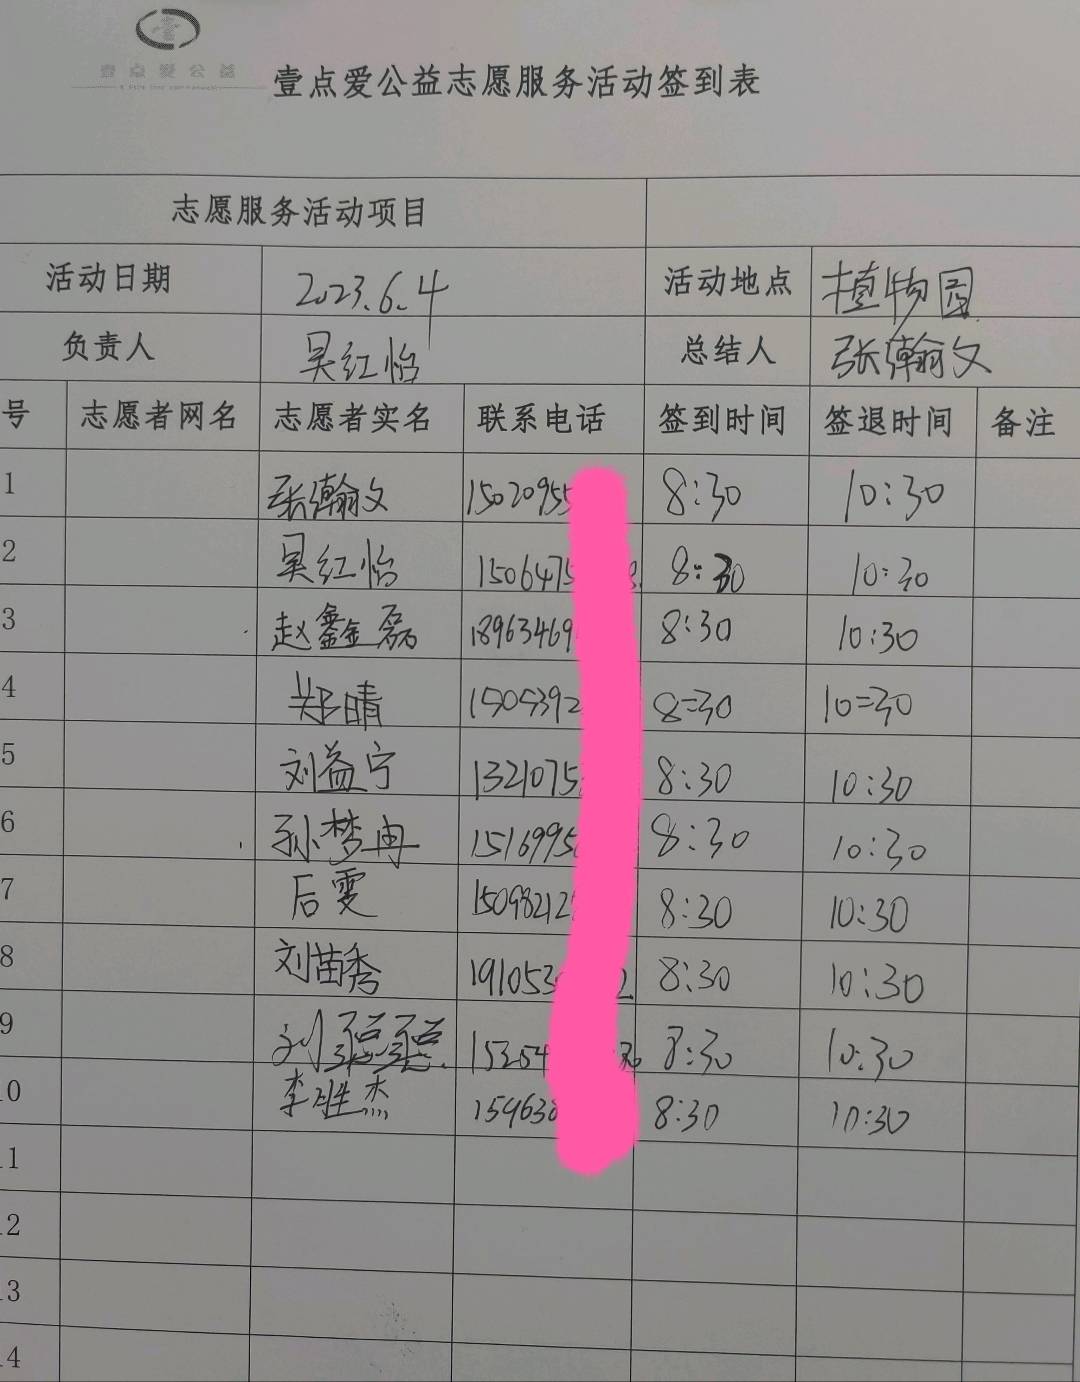 壹点爱公益
壹点爱公益志愿服务活动签到表
志愿服务活动项目
活动日期 2023.6.4 活动地点 植物园
负责人 吴红怡 总结人 张瀚文
号 志愿者网名 志愿者实名 联系电话 签到时间 签退时间 备注
1 张瀚文 1502095 8:30 10:30
2 吴红怡 1506475 8:30 10:30
3 赵鑫磊 1896346 8:30 10:30
4 郑晴 1505392 8=30 10=30
5 刘益宁 1321075 8:30 10:30
6 孙梦冉 1516995 8:30 10:30
7 后雯 1509821 8:30 10:30
8 刘苗秀 191053 2 8:30 10:30
9 刘 15254 8:30 10:30
10 李胜杰 159638 8:30 10:30
11
12
13
14